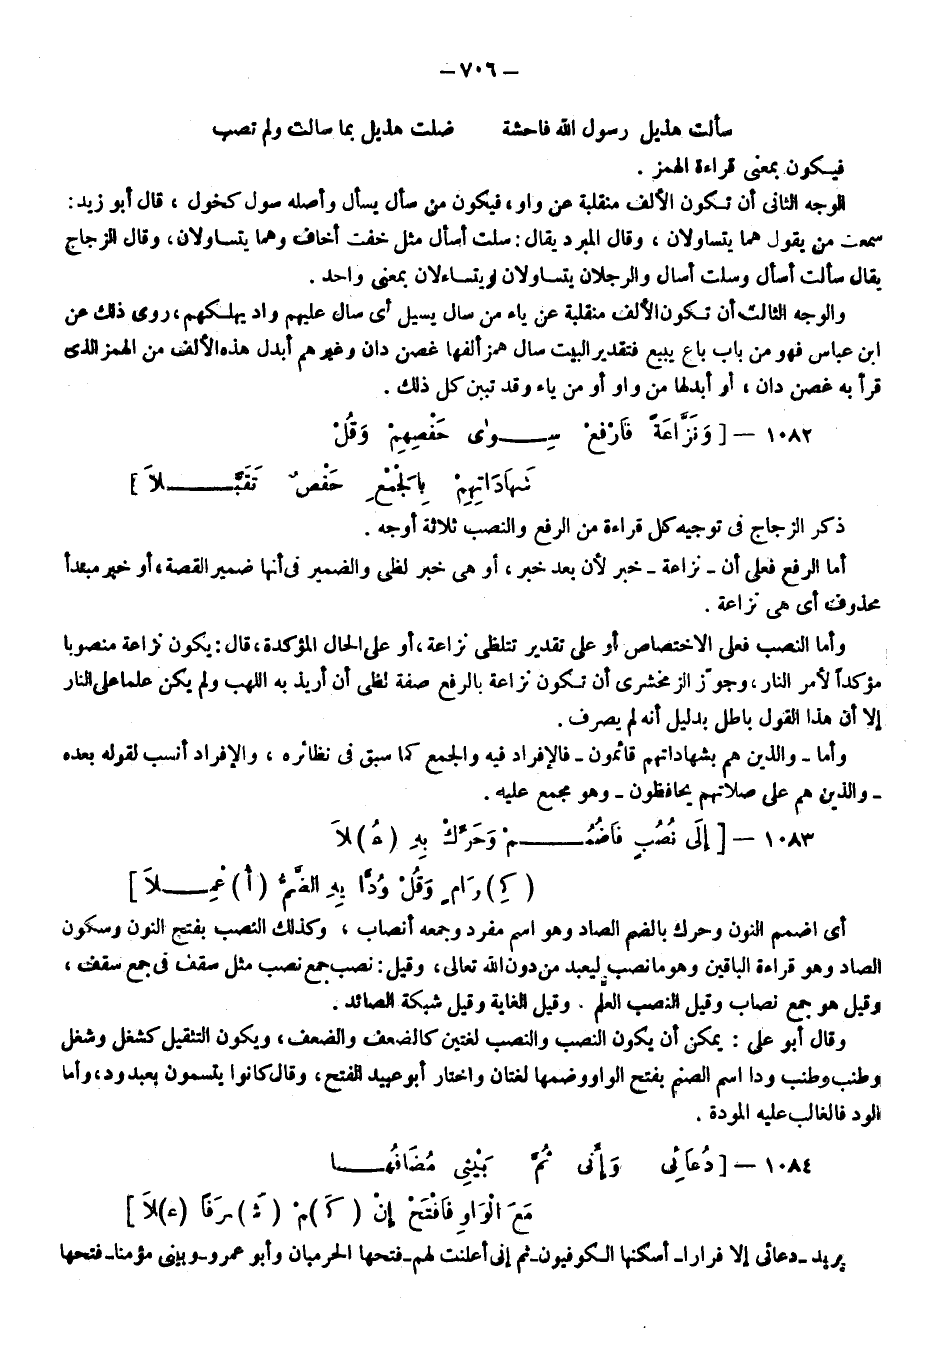 — ٧٠٦ —
سألت هذيل رسول الله فاحشة ضلت هذيل بما سالت ولم تصب
فيكون بمعنى قراءة الهمز .
الوجه الثانى أن تكون الألف منقلبة عن واو، فيكون من سأل يسأل وأصله سول كخول ، قال أبو زيد :
سمعت من يقول هما يتساولان ، وقال المبرد يقال : سلت أسأل مثل خفت أخاف وهما يتساولان، وقال الزجاج
يقال سألت أسأل وسلت أسال والرجلان يتساولان ويتساءلان بمعنى واحد .
والوجه الثالث أن تكون الألف منقلبة عن ياء من سال يسيل أى سال عليهم واد يهلكهم، روى ذلك عن
ابن عباس فهو من باب باع يبيع فتقدير البيت سال همز ألفها غصن دان وغيرهم أبدل هذه الألف من الهمز الذى
قرأ به غصن دان ، أو أبدلها من واو أو من ياء وقد تبين كل ذلك .
١٠٨٢ — [ وَنَزَّاعَةً فَارْفَعْ سِــوٰى حَفْصِهِمْ وَقُلْ
شَهَادَاتِهِمْ بِالْجَمْعِ حَفْصٌ تَقَبَّــلاَ ]
ذكر الزجاج فى توجيه كل قراءة من الرفع والنصب ثلاثة أوجه .
أما الرفع فعلى أن ـ نزاعة ـ خبر لأن بعد خبر ، أو هى خبر لظى والضمير فى أنها ضمير القصة، أو خبر مبتدأ
محذوف أى هى نزاعة .
وأما النصب فعلى الاختصاص أو على تقدير تتلظى نزاعة، أو على الحال المؤكدة، قال : يكون نزاعة منصوبا
مؤكداً لأمر النار، وجوّز الزمخشرى أن تكون نزاعة بالرفع صفة لظى أن أريد به اللهب ولم يكن علما على النار
إلا أن هذا القول باطل بدليل أنه لم يصرف .
وأما ـ والذين هم بشهاداتهم قائمون ـ فالإفراد فيه والجمع كما سبق فى نظائره ، والإفراد أنسب لقوله بعده
ـ والذين هم على صلاتهم يحافظون ـ وهو مجمع عليه .
١٠٨٣ — [ إِلَى نُصُبٍ فَاضْمُــمْ وَحَرِّكْ بِهِ (عُ)لاَ
(كِ)رَامٍ وَقُلْ وُدًّا بِهِ الضَّمُّ (أُ)عْمِــلاَ ]
أى اضمم النون وحرك بالضم الصاد وهو اسم مفرد وجمعه أنصاب ، وكذلك النصب بفتح النون وسكون
الصاد وهو قراءة الباقين وهو ما نصب ليعبد من دون الله تعالى، وقيل : نصب جمع نصب مثل سقف فى جمع سقف ،
وقيل هو جمع نصاب وقيل النصب العلَم . وقيل الغاية وقيل شبكة الصائد .
وقال أبو على : يمكن أن يكون النصب والنصب لغتين كالضعف والضعف، ويكون التثقيل كشغل وشغل
وطنب وطنب ودا اسم الصنم بفتح الواو وضمها لغتان واختار أبو عبيد الفتح، وقال كانوا يتسمون بعبد ود، وأما
الود فالغالب عليه المودة .
١٠٨٤ — [ دُعَائِى وَإِنِّى ثُمَّ بَيْتِى مُضَافُهَــا
مَعَ الْوَاوِ فَافْتَحْ إِنْ (كَ)مْ (شَ)رَفًا (عَ)لاَ ]
يريد ـ دعائى إلا فرارا ـ أسكنها الكوفيون ـ ثم إنى أعلنت لهم ـ فتحها الحرميان وأبو عمرو ـ وبيتى مؤمنا ـ فتحها